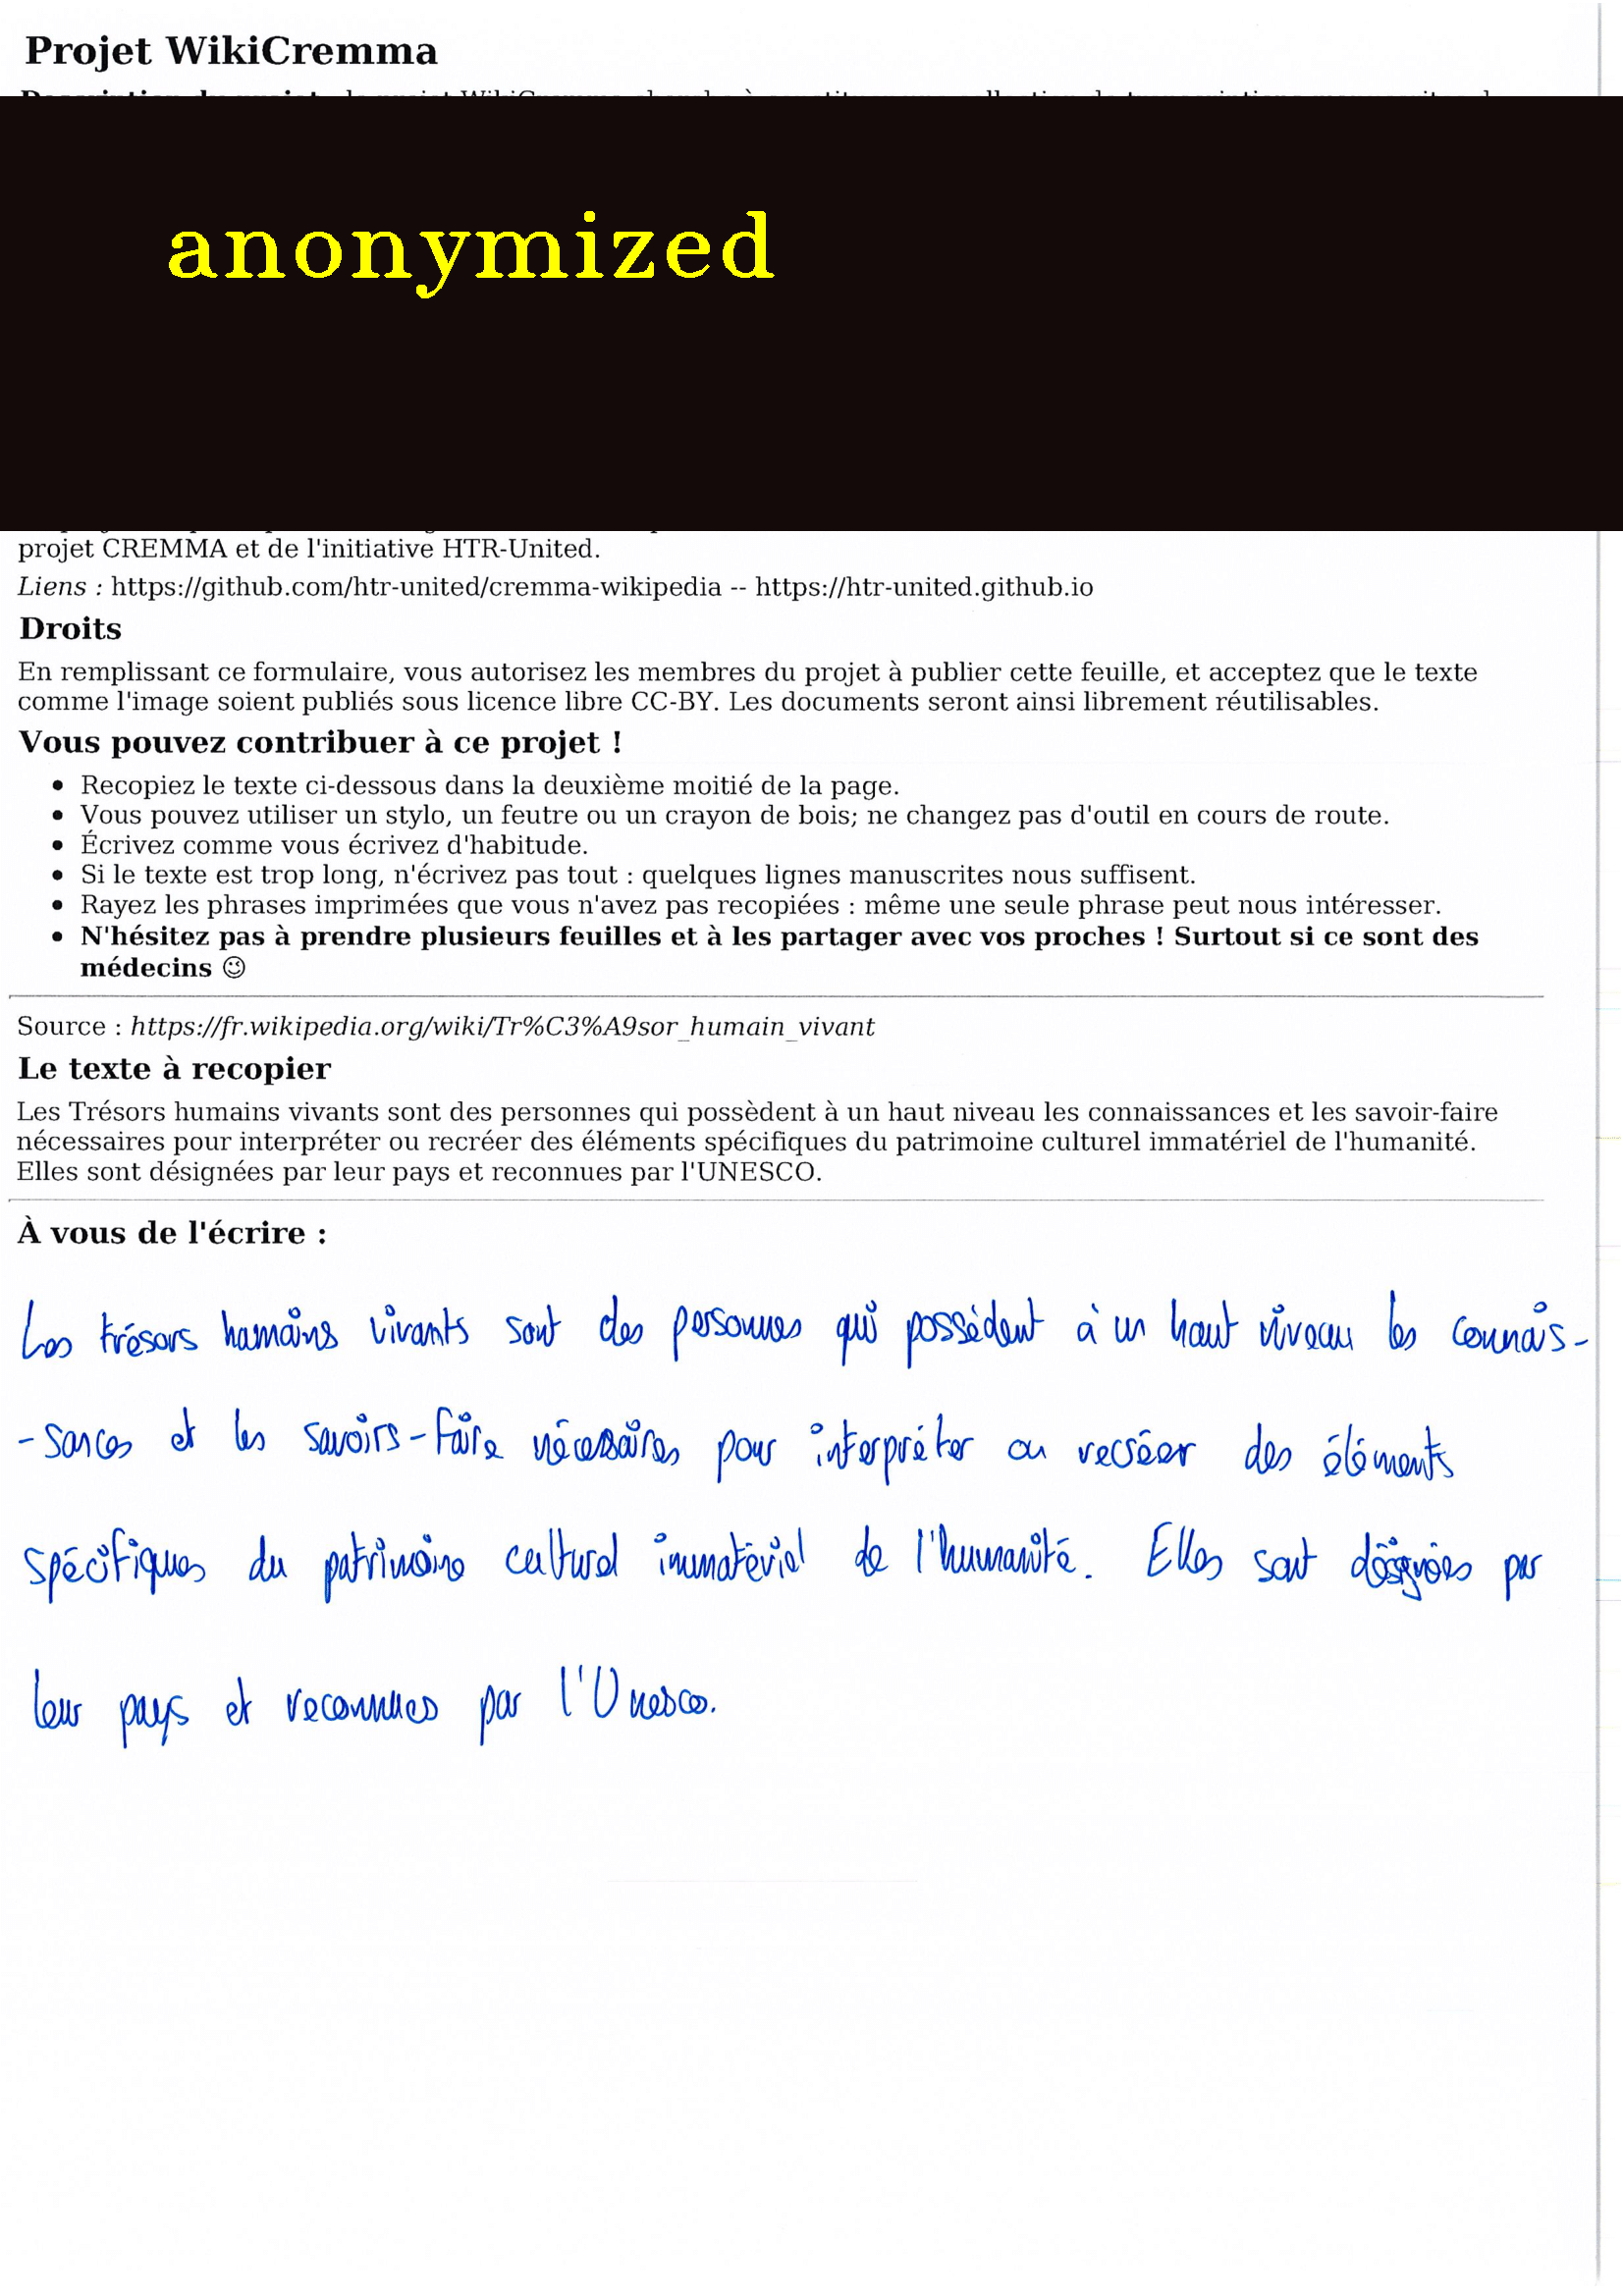 Projet WikiCremma
anonymized
projet CREMMA et de l'initiative HTR-United.
Liens : https://github.com/htr-united/cremma-wikipedia -- https://htr-united.github.io
Droits
En remplissant ce formulaire, vous autorisez les membres du projet à publier cette feuille, et acceptez que le texte
comme l'image soient publiés sous licence libre CC-BY. Les documents seront ainsi librement réutilisables.
Vous pouvez contribuer à ce projet !
• Recopiez le texte ci-dessous dans la deuxième moitié de la page.
• Vous pouvez utiliser un stylo, un feutre ou un crayon de bois; ne changez pas d'outil en cours de route.
• Écrivez comme vous écrivez d'habitude.
• Si le texte est trop long, n'écrivez pas tout : quelques lignes manuscrites nous suffisent.
• Rayez les phrases imprimées que vous n'avez pas recopiées : même une seule phrase peut nous intéresser.
• N'hésitez pas à prendre plusieurs feuilles et à les partager avec vos proches ! Surtout si ce sont des
médecins 😉
Source : https://fr.wikipedia.org/wiki/Tr%C3%A9sor_humain_vivant
Le texte à recopier
Les Trésors humains vivants sont des personnes qui possèdent à un haut niveau les connaissances et les savoir-faire
nécessaires pour interpréter ou recréer des éléments spécifiques du patrimoine culturel immatériel de l'humanité.
Elles sont désignées par leur pays et reconnues par l'UNESCO.
À vous de l'écrire :
Les trésors humains vivants sont des personnes qui possèdent à un haut niveau les connais-
-sances et les savoirs-faire nécessaires pour interpréter ou recréer des éléments
spécifiques du patrimoine culturel immatériel de l'humanité. Elles sont désignées par
leur pays et reconnues par l'Unesco.